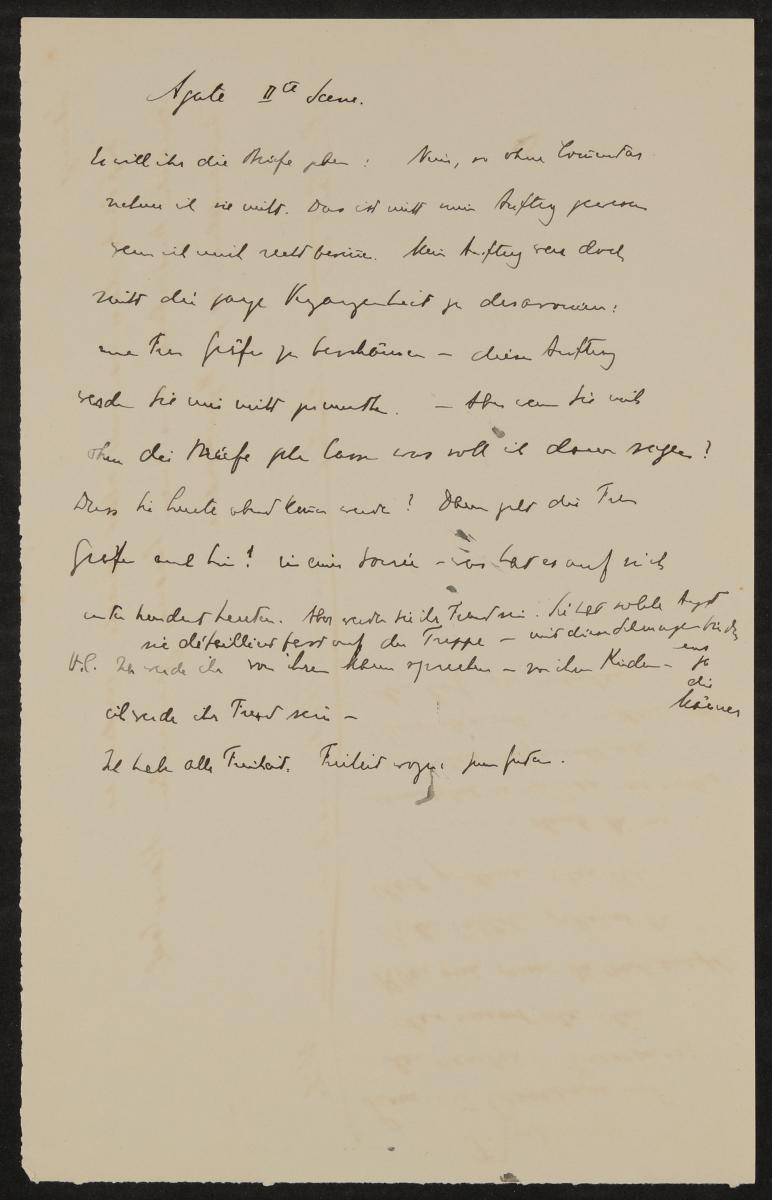 Agate IIte Scene.
Er will ihr die Briefe geben: Nein, so ohne
nehme ich sie nicht. Das ist nicht mein Auftrag gewesen
wenn ich mich recht besinne. Mein Auftrag war doch
nicht die ganze Vergangenheit zu desavouieren:
eine Frau Gräfin zu beschämen – diesen Auftrag
werden Sie mir nicht zumuthen. – Aber wenn Sie mich
ohne die Briefe gehn lassen was soll ich dann sagen?
Dass Sie heute abend kommen werden? Dann geht die Frau
Gräfin und hin! in eine Soirée – was hat es auf sich
unter hundert Leuten. Aber werden Sie ihr Freund sein. Sie hat solche Angst
sie détailliert fast auf der Treppe – mit diesen
H.C. Ich werde ihr von ihrem Mann sprechen – von ihren Kindern –
die
Männer
ich werde ihr Freund sein –
Ich habe alle Freiheit. Freiheit wozu: zum